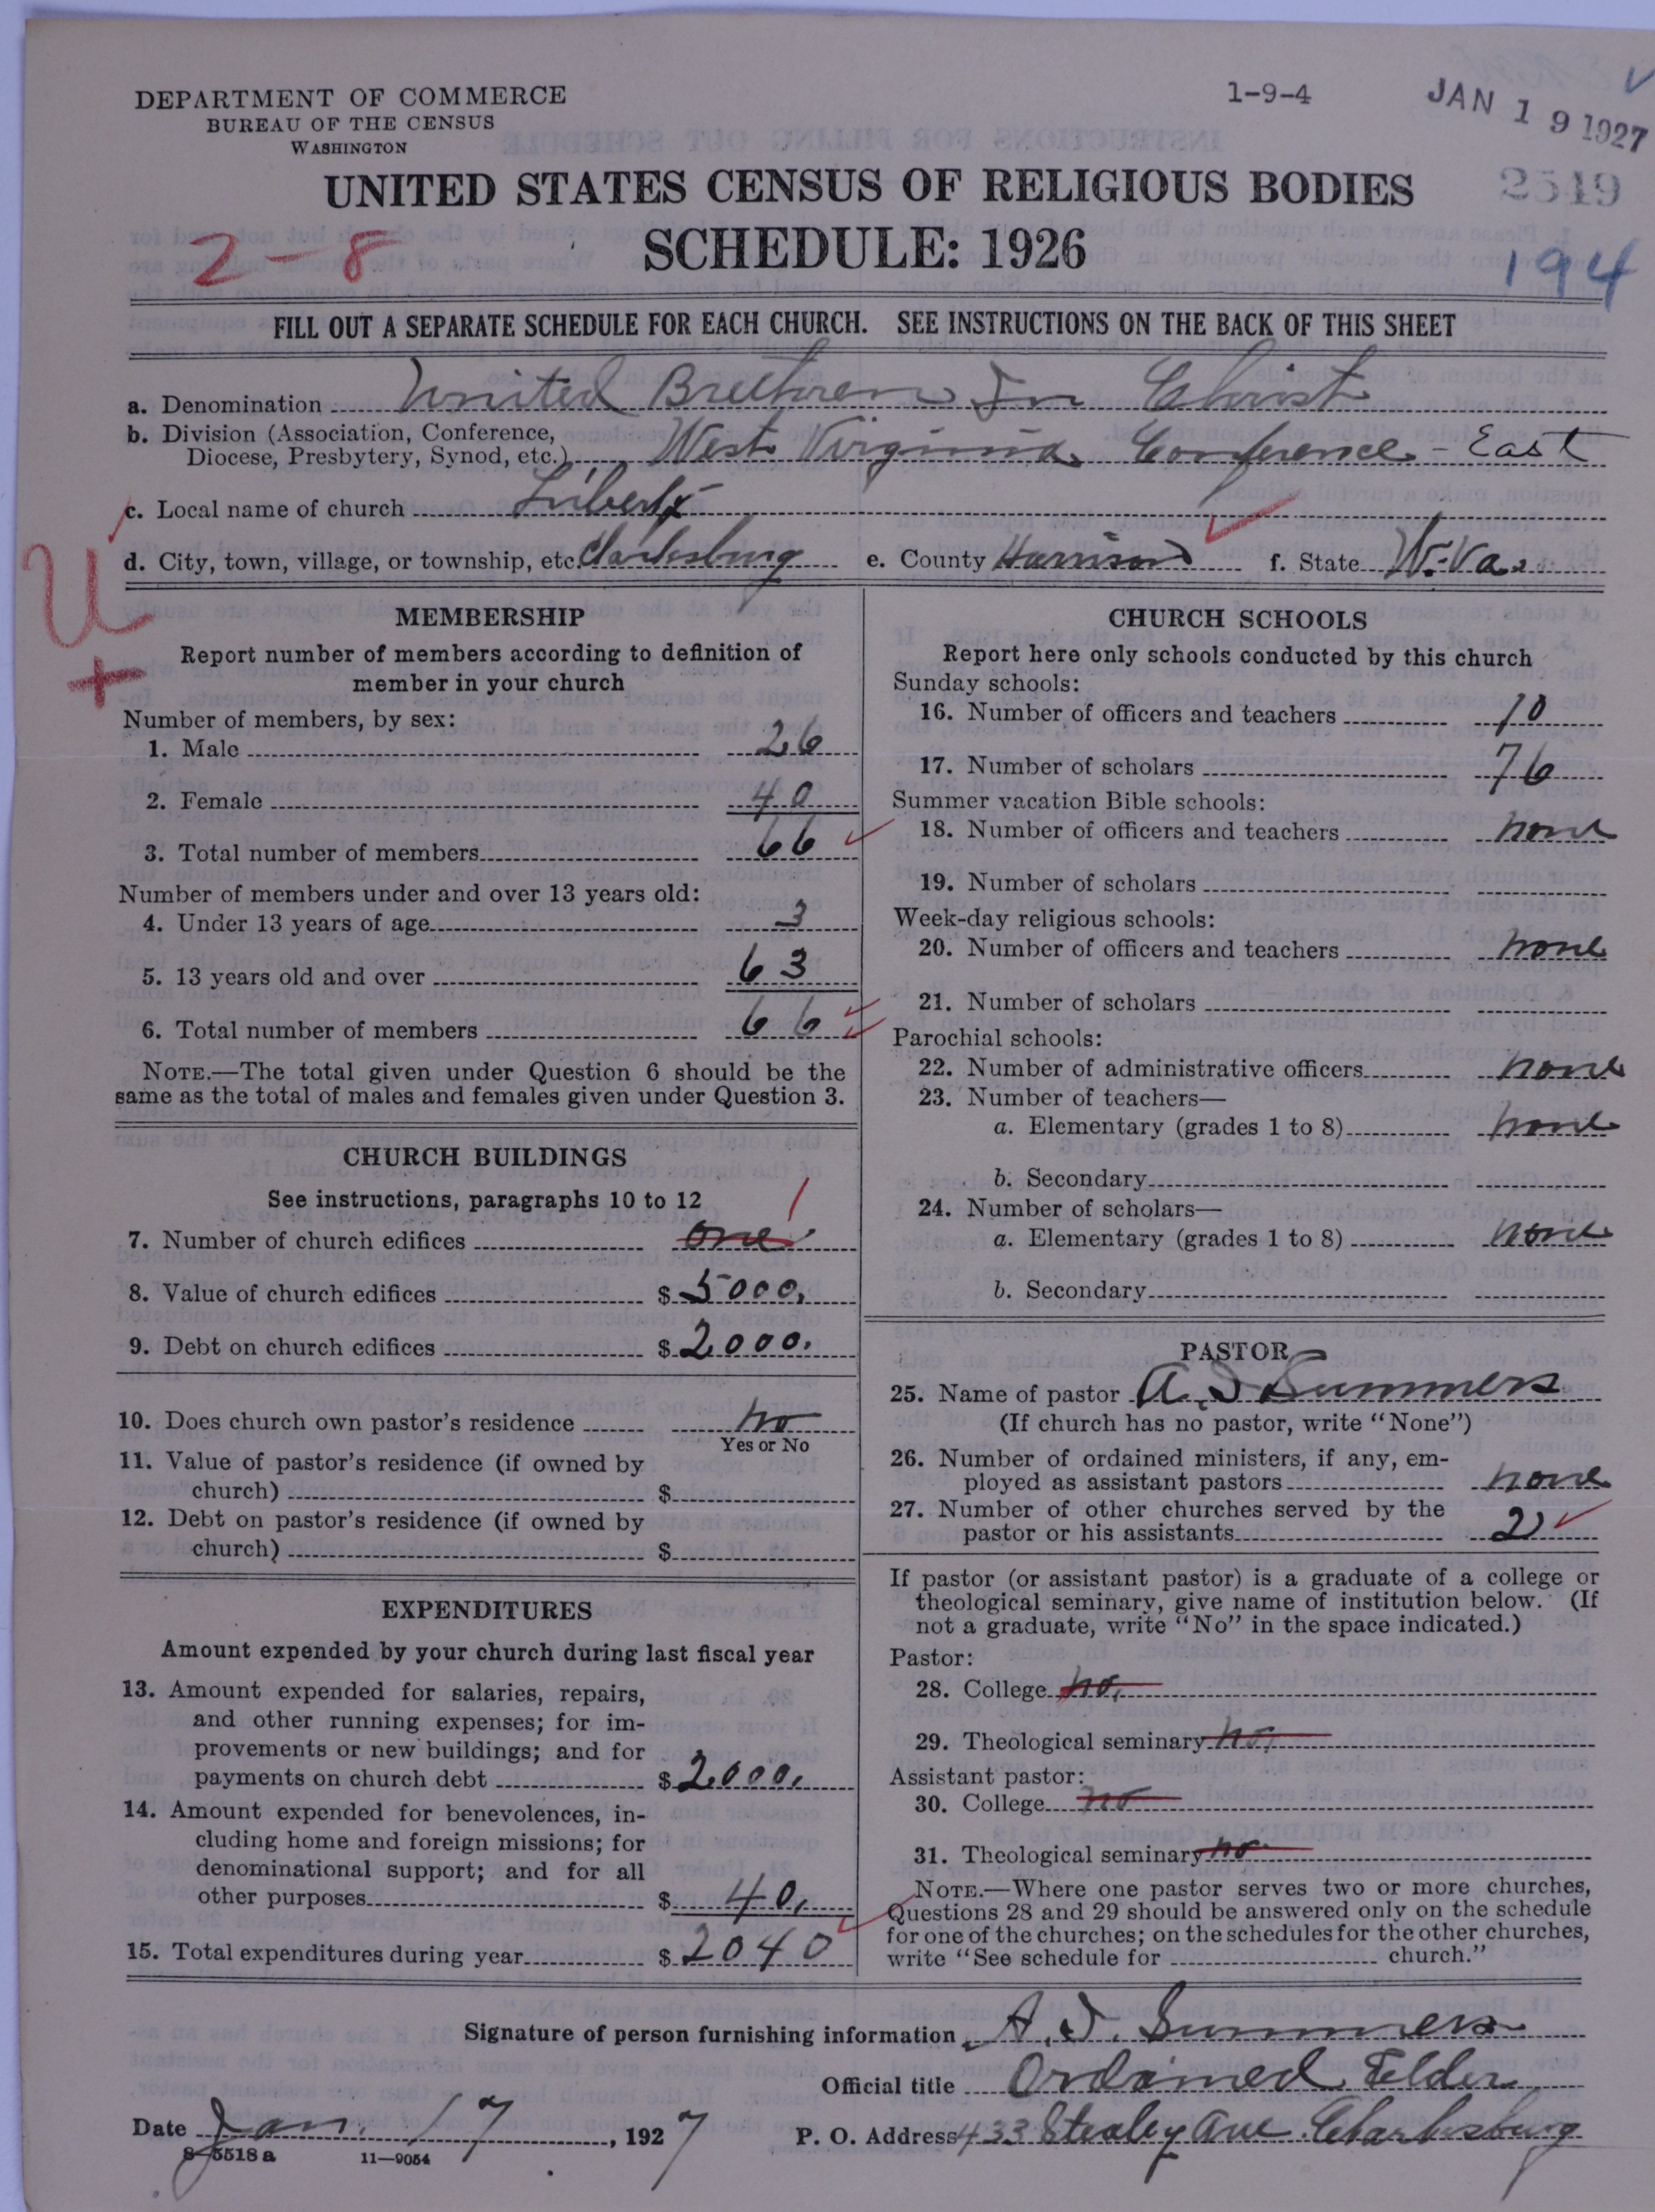 DEPARTMENT OF COMMERCE
BUREAU OF THE CENSUS
WASHINGTON
1-9-4
JAN 19 1927
2549
UNITED STATES CENSUS OF RELIGIOUS BODIES
SCHEDULE: 1926
2-8
194
FILL OUT A SEPARATE SCHEDULE FOR EACH CHURCH. SEE INSTRUCTIONS ON THE BACK OF THIS SHEET
a. Denomination United Brethren In Christ
b. Division (Association, Conference,
Diocese, Presbytery, Synod, etc.) West Virginia Conference - East
c. Local name of church Liberty
d. City, town, village, or township, etc. Clarksburg e. County Harrison f. State W. Va.
U
+
MEMBERSHIP
Report number of members according to definition of
member in your church
Number of members, by sex:
1. Male 26
2. Female 40
3. Total number of members 66
Number of members under and over 13 years old:
4. Under 13 years of age 3
5. 13 years old and over 63
6. Total number of members 66
NOTE.—The total given under Question 6 should be the
same as the total of males and females given under Question 3.
CHURCH BUILDINGS
See instructions, paragraphs 10 to 12
7. Number of church edifices one 1
8. Value of church edifices $ 5000.
9. Debt on church edifices $ 2000.
10. Does church own pastor's residence no
Yes or No
11. Value of pastor's residence (if owned by
church) $
12. Debt on pastor's residence (if owned by
church) $
EXPENDITURES
Amount expended by your church during last fiscal year
13. Amount expended for salaries, repairs,
and other running expenses; for im-
provements or new buildings; and for
payments on church debt $ 2000.
14. Amount expended for benevolences, in-
cluding home and foreign missions; for
denominational support; and for all
other purposes $ 40.
15. Total expenditures during year $ 2040
CHURCH SCHOOLS
Report here only schools conducted by this church
Sunday schools:
16. Number of officers and teachers 10
17. Number of scholars 76
Summer vacation Bible schools:
18. Number of officers and teachers none
19. Number of scholars
Week-day religious schools:
20. Number of officers and teachers none
21. Number of scholars
Parochial schools:
22. Number of administrative officers none
23. Number of teachers—
a. Elementary (grades 1 to 8) none
b. Secondary
24. Number of scholars—
a. Elementary (grades 1 to 8) none
b. Secondary
PASTOR
25. Name of pastor A. J. Summers
(If church has no pastor, write "None")
26. Number of ordained ministers, if any, em-
ployed as assistant pastors none
27. Number of other churches served by the
pastor or his assistants 2
If pastor (or assistant pastor) is a graduate of a college or
theological seminary, give name of institution below. (If
not a graduate, write "No" in the space indicated.)
Pastor:
28. College no.
29. Theological seminary no.
Assistant pastor:
30. College no
31. Theological seminary no
NOTE.—Where one pastor serves two or more churches,
Questions 28 and 29 should be answered only on the schedule
for one of the churches; on the schedules for the other churches,
write "See schedule for church."
Signature of person furnishing information A. J. Summers
Official title Ordained Elder
Date Jan. 17, 1927 P. O. Address 433 Stealey Ave Clarksburg
8-5518 a 11-9054